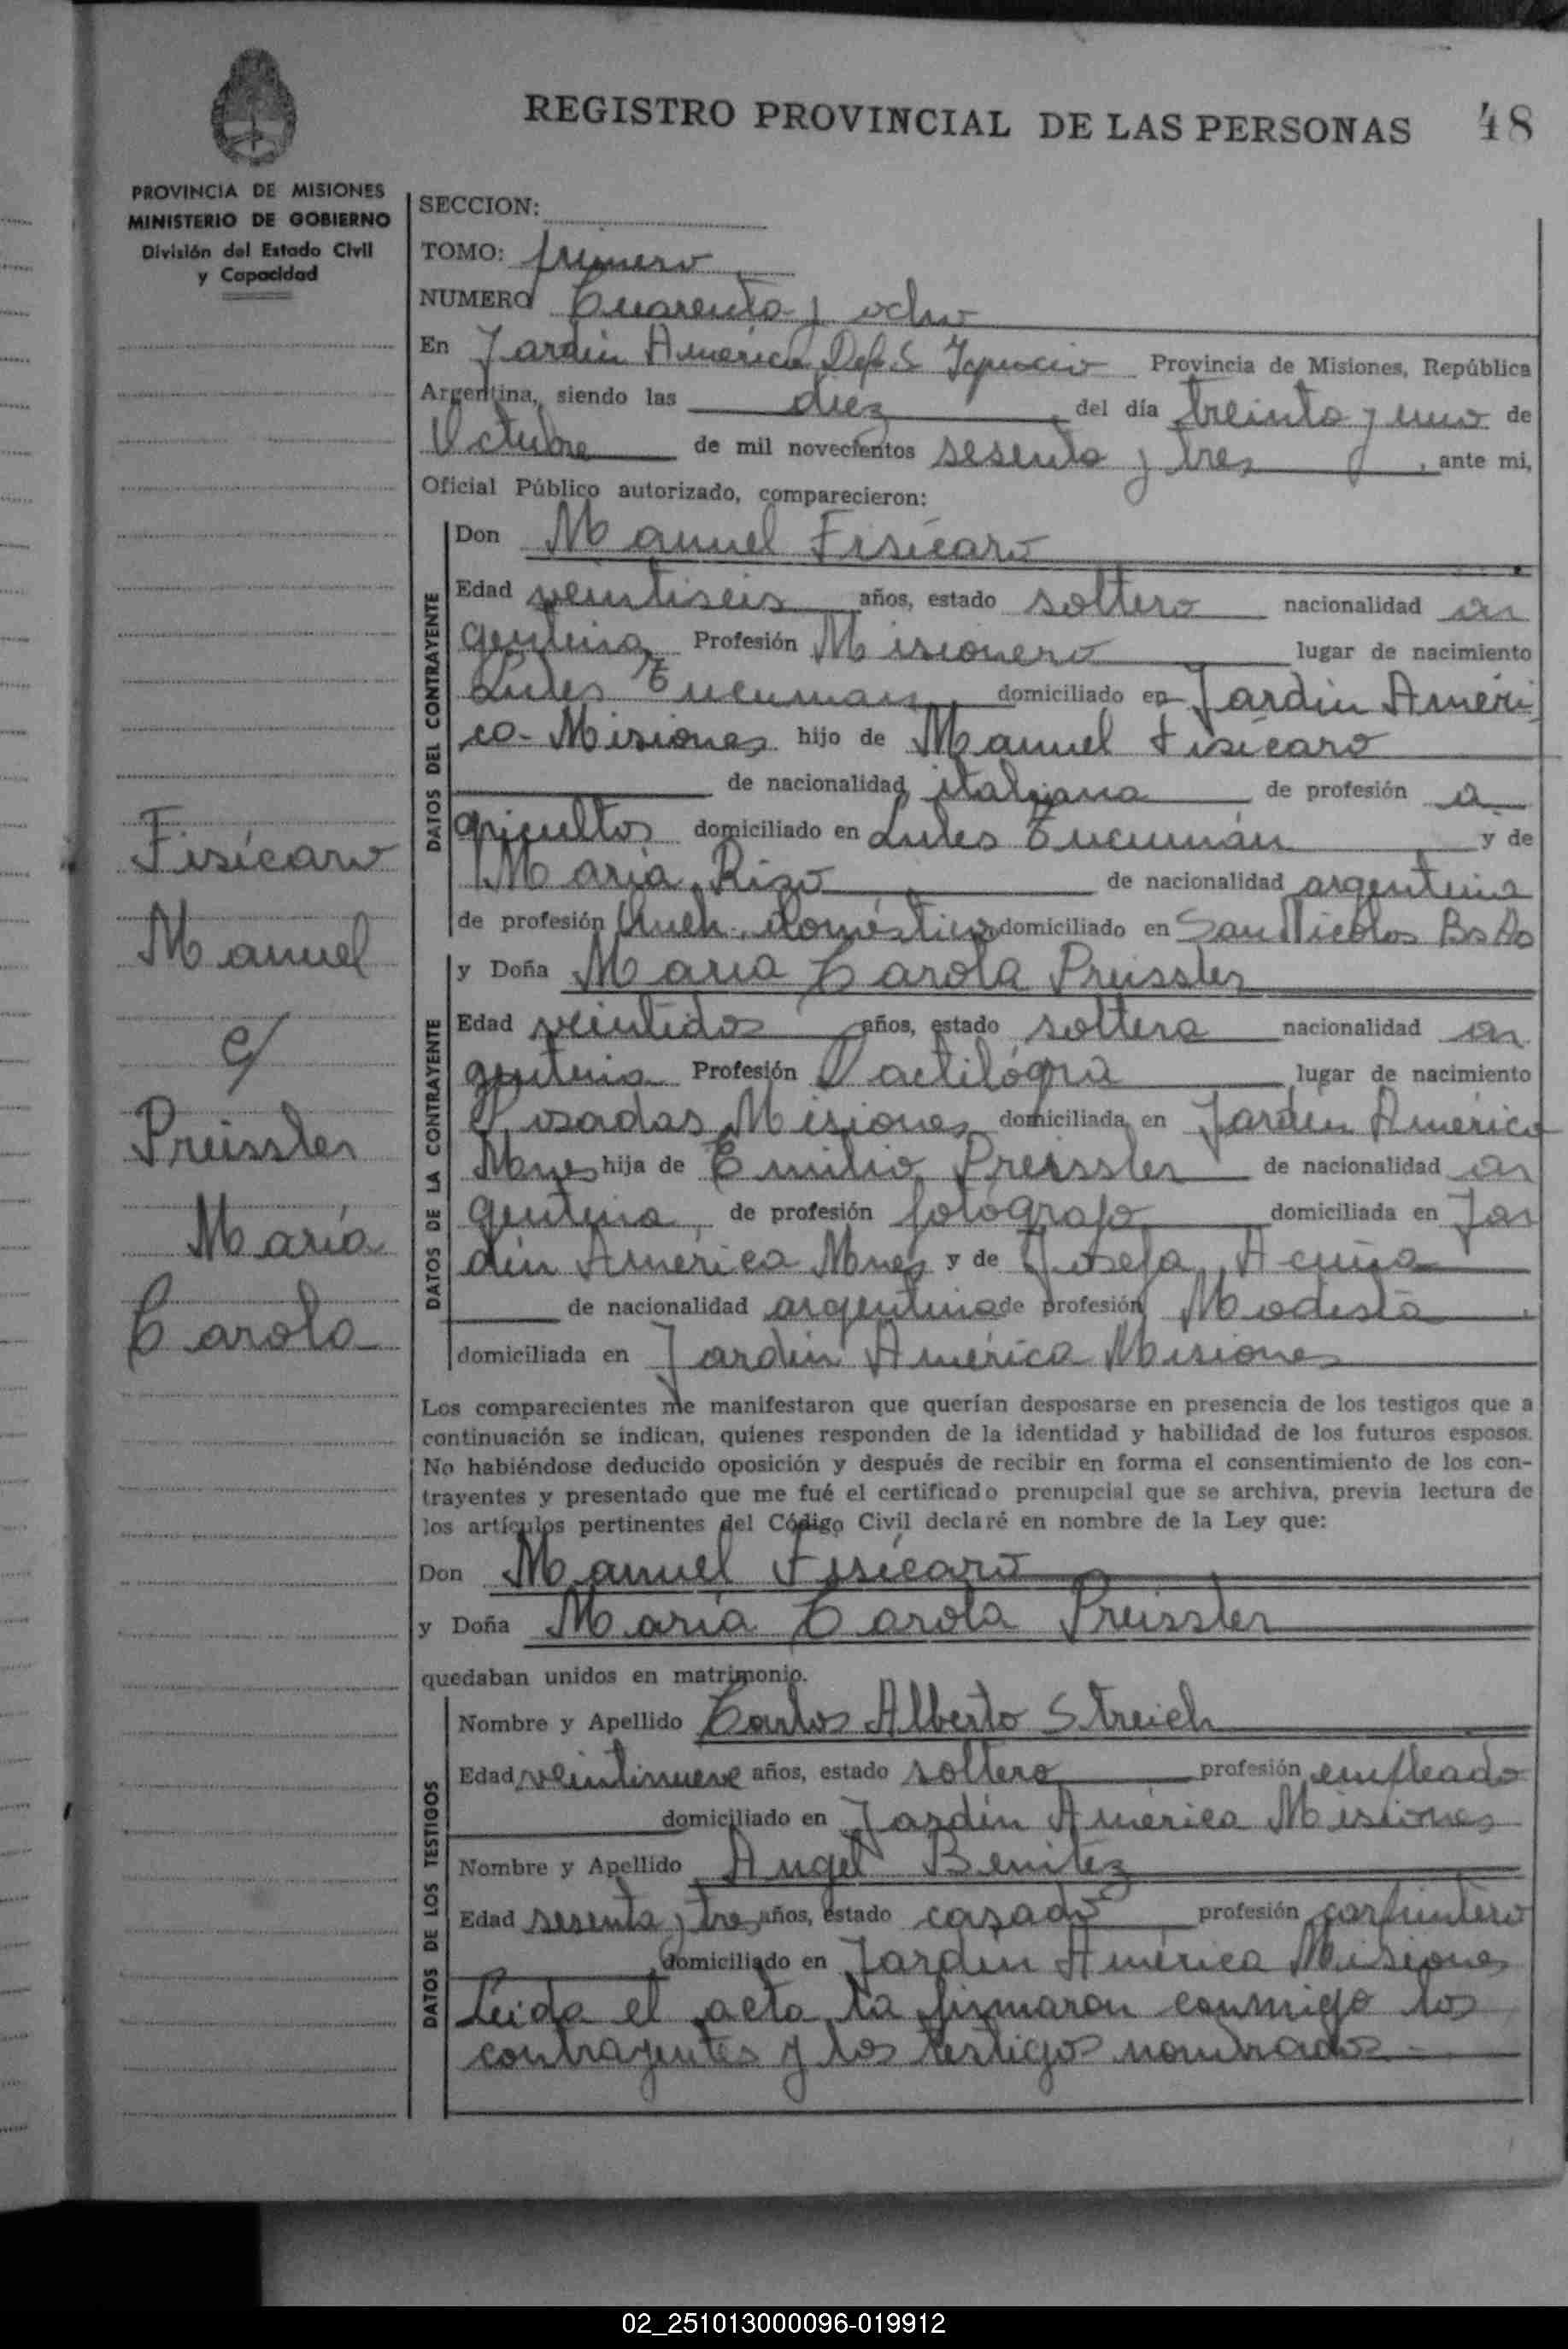 REGISTRO PROVINCIAL DE LAS PERSONAS 48
PROVINCIA DE MISIONES
MINISTERIO DE GOBIERNO
División del Estado Civil
y Capacidad
SECCION:
TOMO: primero
NUMERO Cuarenta y ocho
En Jardín América Dep S. Ignacio Provincia de Misiones, República
Argentina, siendo las diez del día treinta y uno de
Octubre de mil novecientos sesenta y tres, ante mi,
Oficial Público autorizado, comparecieron:
DATOS DEL CONTRAYENTE
Don Manuel Fisícaro
Edad veintiseis años, estado soltero nacionalidad ar
gentina Profesión Misionero lugar de nacimiento
Lules Tucuman domiciliado en Jardín Améri
ca - Misiones hijo de Manuel Fisícaro
de nacionalidad italiana de profesión a
gricultor domiciliado en Lules Tucumán y de
María Rizo de nacionalidad argentina
de profesión Queh. domésticos domiciliado en San Nicolos Bs As
DATOS DE LA CONTRAYENTE
y Doña María Carola Preissler
Edad veintidos años, estado soltera nacionalidad ar
gentina Profesión Dactilógra lugar de nacimiento
Posadas Misiones domiciliada en Jardín América
Mnes hija de Emilio Preissler de nacionalidad ar
gentina de profesión fotógrafo domiciliada en Jar
dín América Mnes y de Josefa Acuña
de nacionalidad argentina de profesión Modista
domiciliada en Jardín América Misiones
Los comparecientes me manifestaron que querían desposarse en presencia de los testigos que a
continuación se indican, quienes responden de la identidad y habilidad de los futuros esposos.
No habiéndose deducido oposición y después de recibir en forma el consentimiento de los con-
trayentes y presentado que me fué el certificado prenupcial que se archiva, previa lectura de
los artículos pertinentes del Código Civil declaré en nombre de la Ley que:
Don Manuel Fisícaro
y Doña María Carola Preissler
quedaban unidos en matrimonio.
DATOS DE LOS TESTIGOS
Nombre y Apellido Carlos Alberto Streich
Edad veintinueve años, estado soltero profesión empleado
domiciliado en Jardín América Misiones
Nombre y Apellido Angel Benitez
Edad sesenta y tres años, estado casado profesión carpintero
domiciliado en Jardín América Misiones
Leida el acta la firmaron conmigo los
contrayentes y los testigos nombrados.-
Fisícaro
Manuel
c/
Preissler
María
Carola
02_251013000096-019912